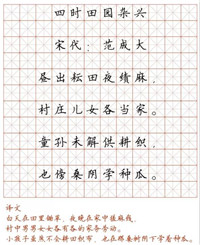 四时田园杂兴
宋代：范成大
昼出耘田夜绩麻，
村庄儿女各当家。
童孙未解供耕织，
也傍桑阴学种瓜。
译文
白天在田里锄草，夜晚在家中搓麻线，
村中男男女女各有各的家务劳动。
小孩子虽然不会耕田织布，也在那桑树阴下学着种瓜。